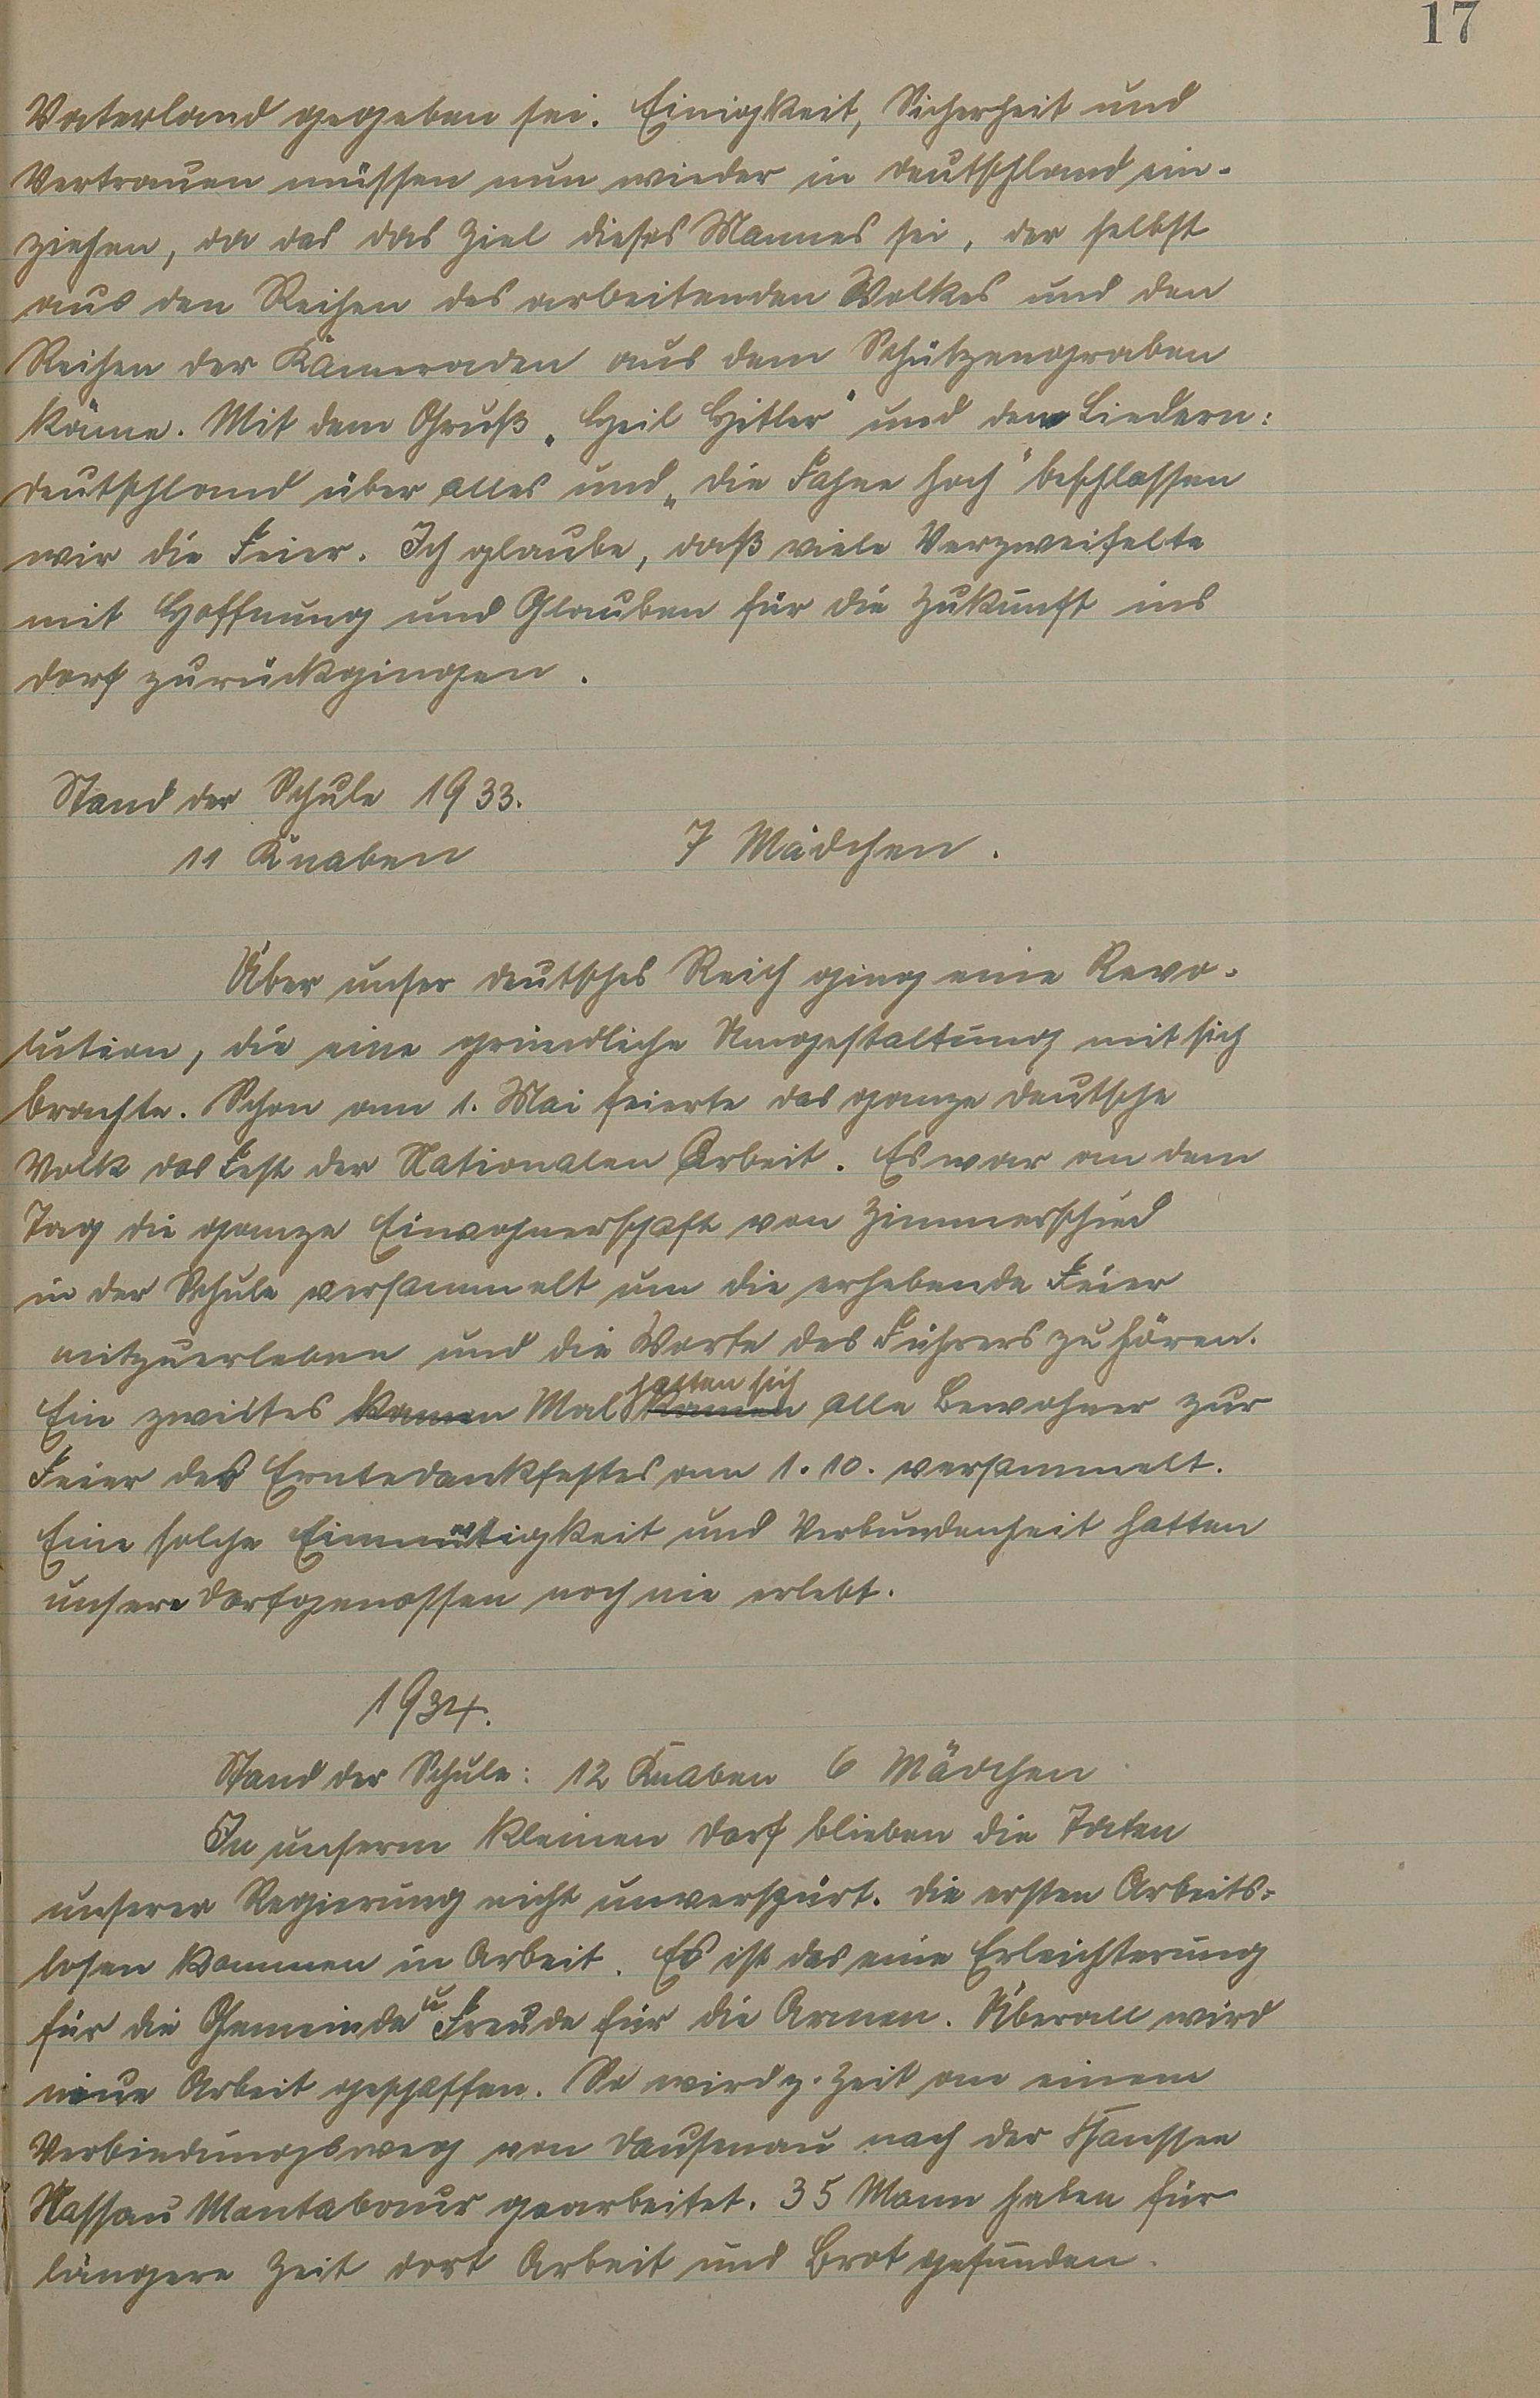 17
Vaterland gegeben sei. Einigkeit, Sicherheit und
Vertrauen müssen nun wieder in Deutschland ein-
ziehen, da das das Ziel dieses Mannes sei, der selbst
aus den Reihen des arbeitenden Volkes und den
Reihen der Kameraden aus dem Schützengraben
käme. Mit dem Gruß „Heil Hitler" und den Liedern:
Deutschland über alles und „Die Fahne hoch" beschlossen
wir die Feier. Ich glaube, daß viele Verzweifelte
mit Hoffnung und Glauben für die Zukunft ins
Dorf zurückgingen.
Stand der Schule 1933.
11 Knaben 7 Mädchen.
Über unser deutsches Reich ging eine Revo-
lution, die eine gründliche Umgestaltung mit sich
brachte. Schon am 1. Mai feierte das ganze deutsche
Volk das Fest der Nationalen Arbeit. Es war an dem
Tag die ganze Einwohnerschaft von Zimmerschied
in der Schule versammelt um die erhebende Feier
mitzuerleben und die Worte des Führers zu hören.
hatten sich
Ein zweites kamen Mal kamen alle Bewohner zur
Feier des Erntedankfestes am 1.10. versammelt.
Eine solche Einmütigkeit und Verbundenheit hatten
unsere Dorfgenossen noch nie erlebt.
1934.
Stand der Schule: 12 Knaben 6 Mädchen
In unserm kleinen Dorf blieben die Taten
unserer Regierung nicht unverspürt. Die ersten Arbeits-
losen kommen in Arbeit. Es ist das eine Erleichterung
für die Gemeinde u. Freude für die Armen. Überall wird
neue Arbeit geschaffen. So wird z. Zeit an einem
Verbindungsweg von Dausenau nach der Chaussee
Nassau Montabaur gearbeitet. 35 Mann haben für
längere Zeit dort Arbeit und Brot gefunden.